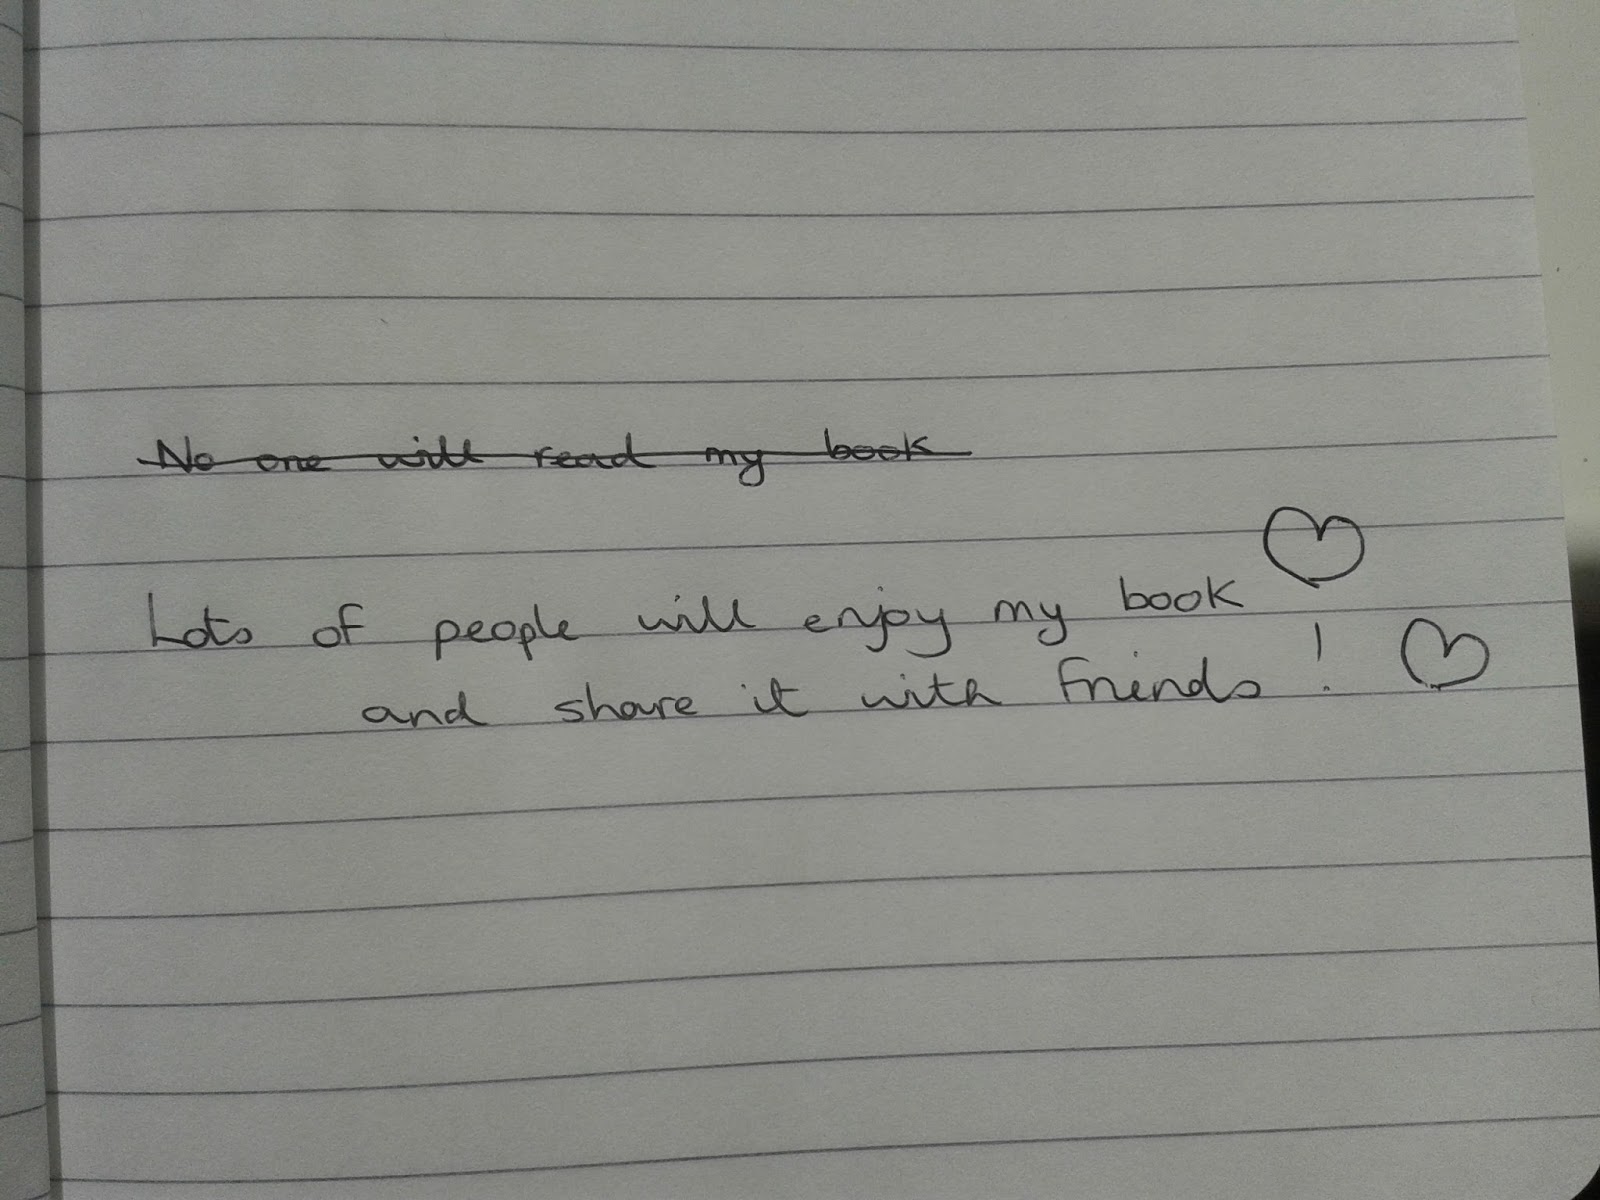 No one will read my book
Lots of people will enjoy my book
and share it with friends !